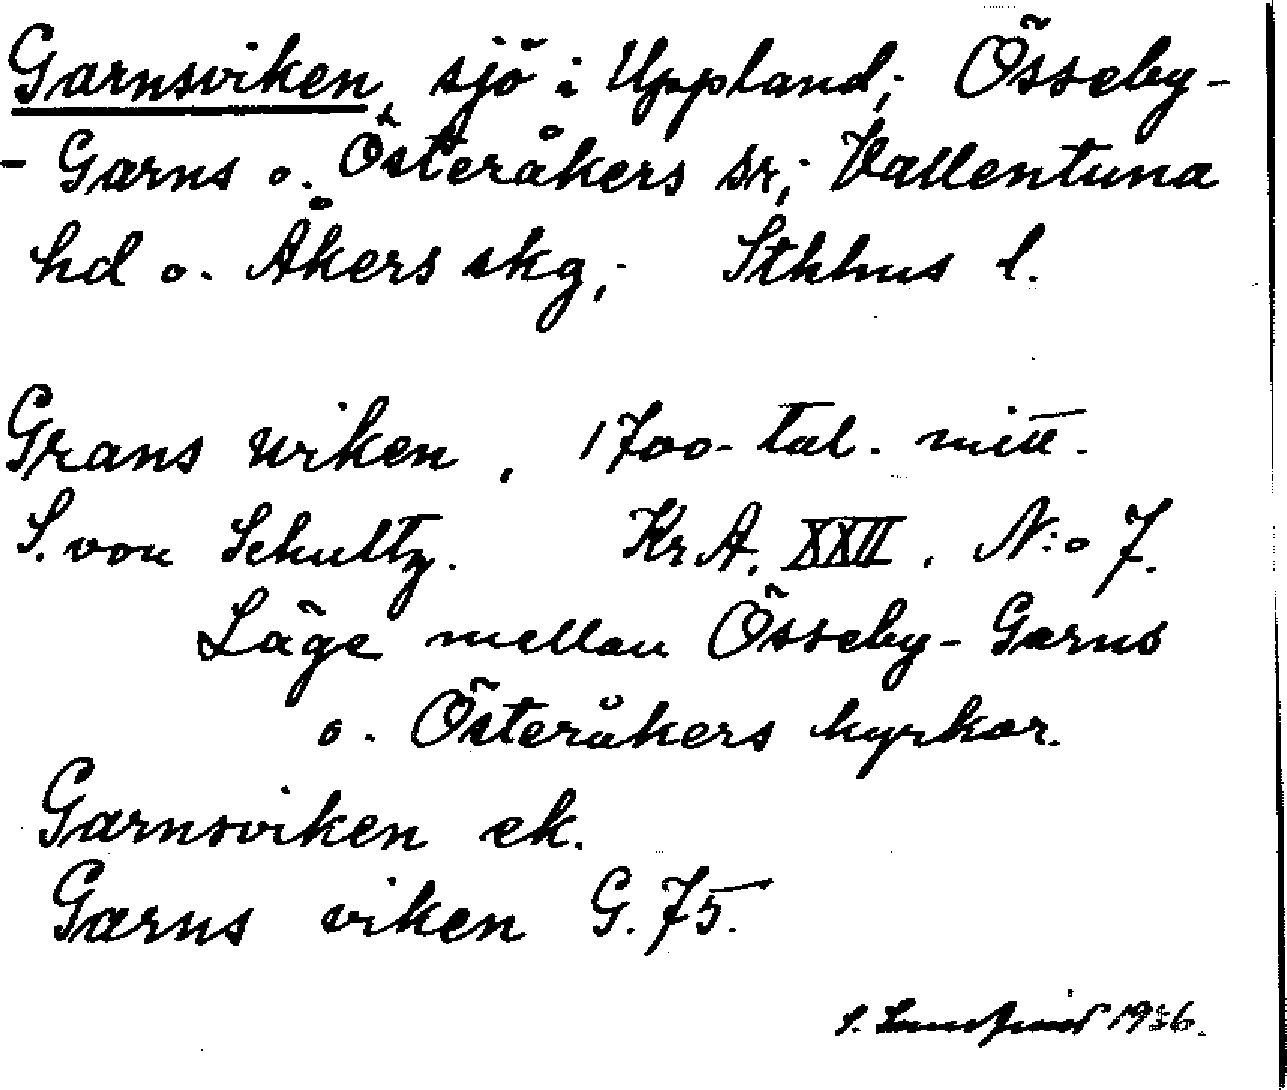 Garnsviken, sjö i Uppland; Össeby-
- Garns o. Österåkers sr; Vallentuna
hd o. Åkers skg; Sthlms l.
Grans wiken, 1700-tal. mitt.
S. von Schultz. Kr A. XXII. N:o 7.
Läge mellan Össeby-Garns
o. Österåkers kyrkor.
Garnsviken ek.
Garns viken G. 75.
S. 1936.